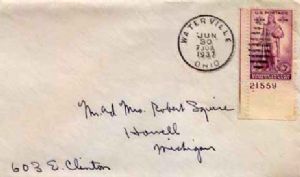 WATERVILLE
JUN
30
1937
OHIO
U.S. POSTAGE
21559
Mr. and Mrs. Robert Squire
Howell
Michigan
603 E. Clinton